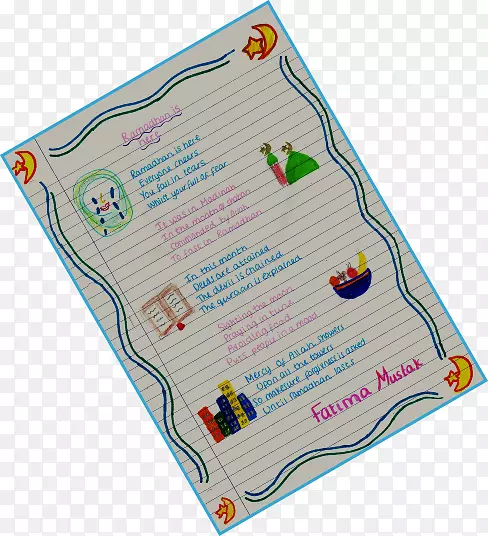 Ramadhan is
here
Ramadhan is here
Everyone cheers
You fall in tears
Whilst your full of fear
It was in Madinah
In the month of
Commanded by Allah
To fast in Ramadhan
In this month
Deeds are attained
The devil is chained
The quraan is explained
Sighting the moon
Praying in tune
Avoiding food
Puts people in a mood
Mercy of Allah showers
Upon all the towers
So make sure forgivness is asked
Until Ramadhan lasts
Fatima Mustak